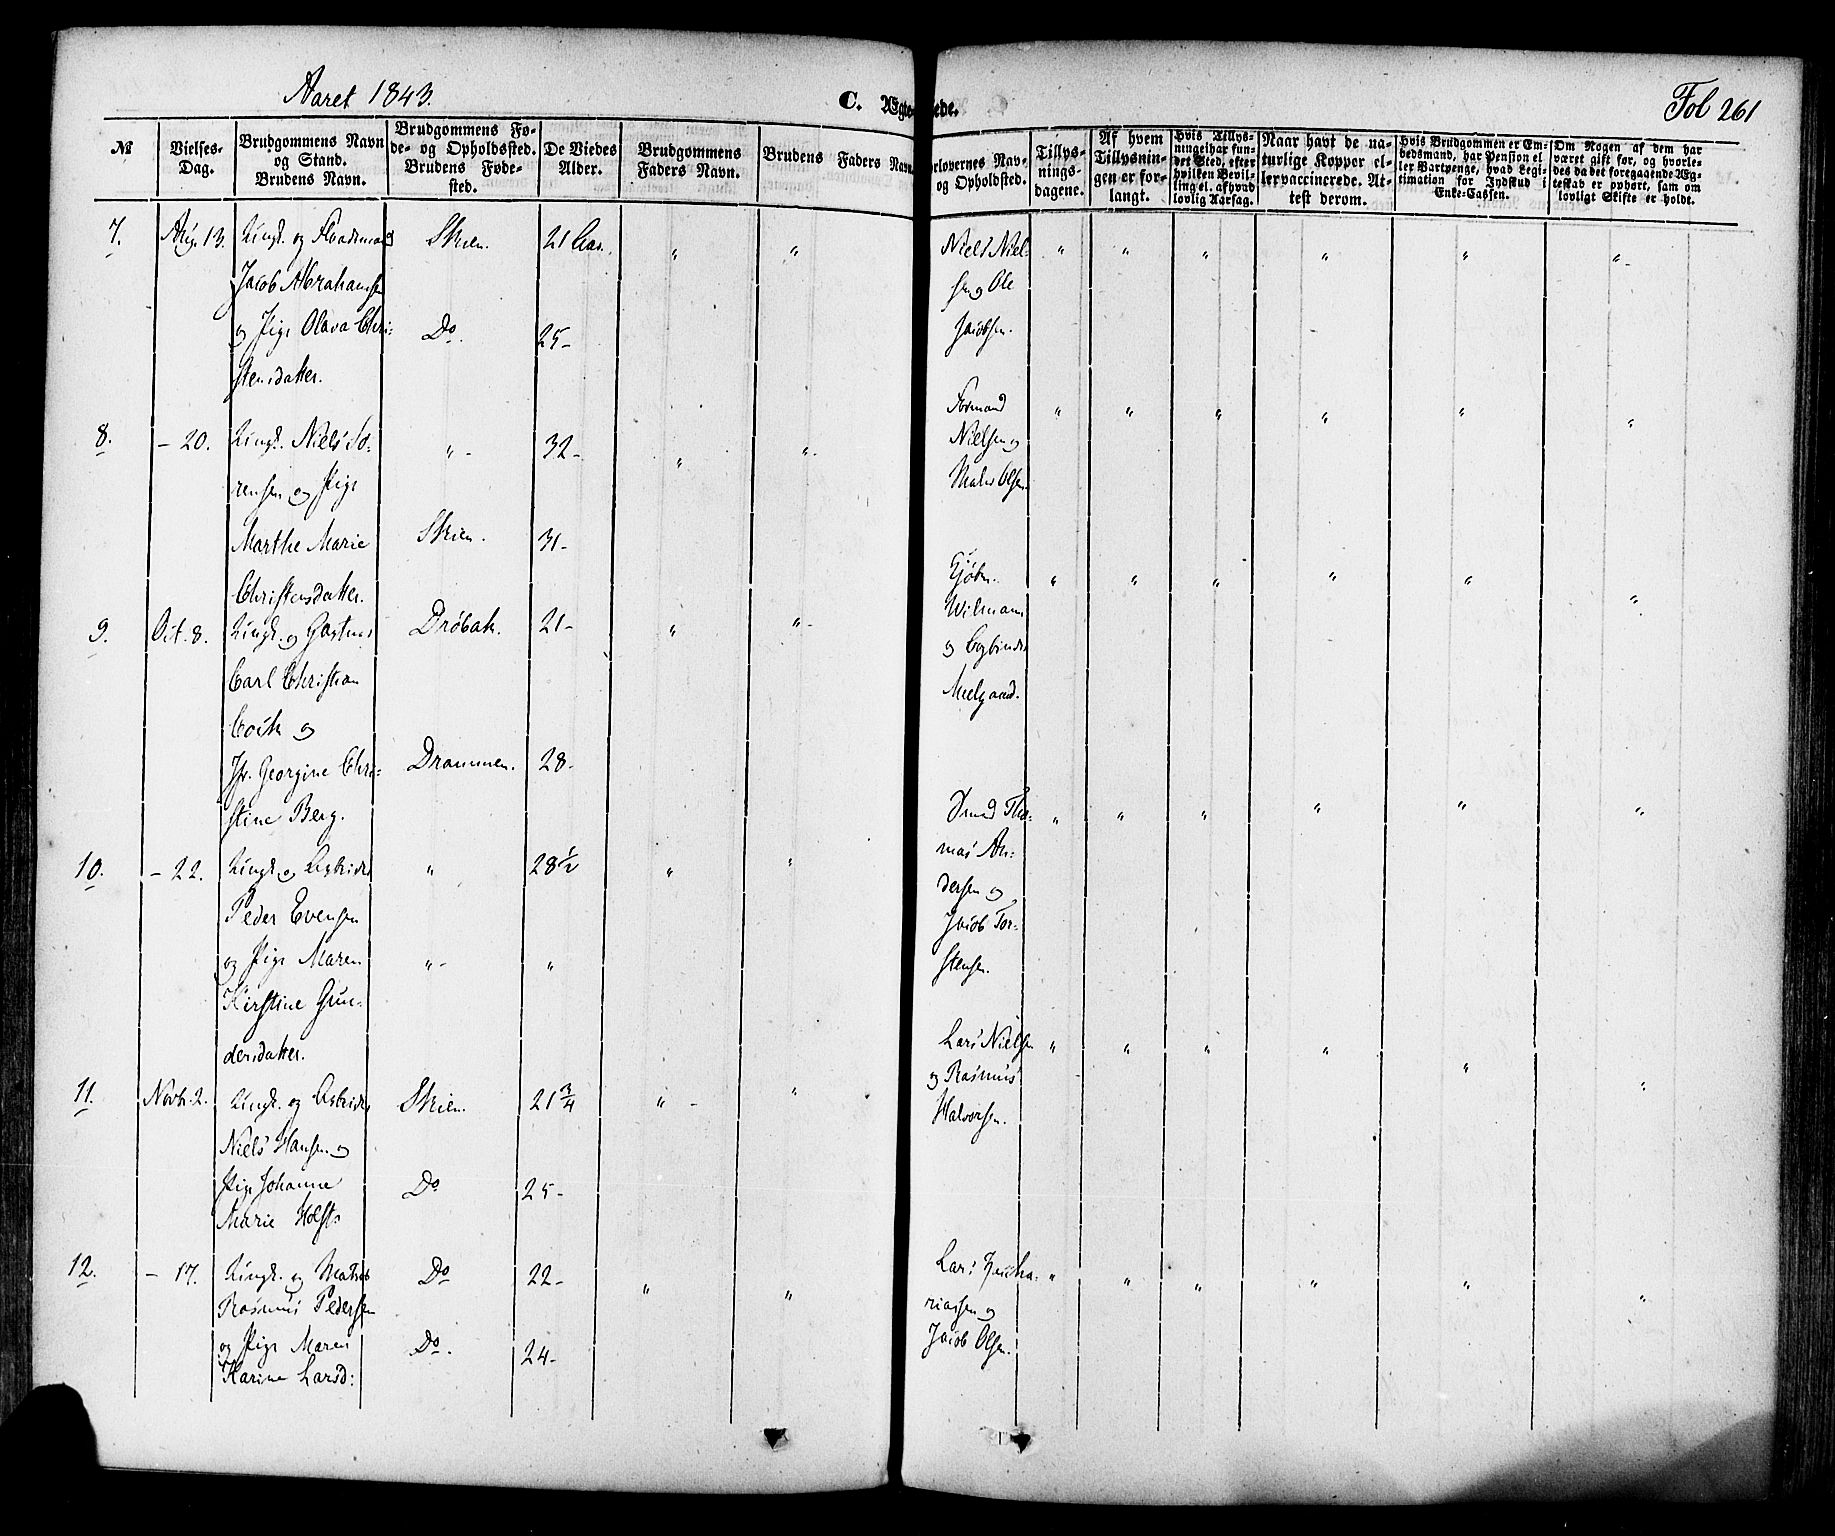 Aaret 1843.
C. Ægte
ede.
Fol 261
№
Vielses-
Dag.
Brudgommens Navn
og Stand.
Brudens Navn.
Brudgommens Fø-
de- og Opholdsted.
Brudens Føde-
sted.
De Viedes
Alder.
Brudgommens
Faders Navn.
Brudens Faders Navn.
orlovernes Nav-
og Opholdsted.
Tillys-
nings-
dagene.
Af hvem
Tillysnin-
gen er for-
langt.
Hvis Tillys-
ningelhar fun-
det Sted, efter
hvilken Bevil-
ling el. afhvad
lovlig Aarsag.
Naar havt de na-
turlige Kopper el-
lervaccinerede. At-
test derom.
Hvis Brudgommen er Em-
bedsmand, har Pension el
ler Vartpenge, hvad Legi-
timation for Indskud i
Enke-Cassen.
Om Nogen af dem har
været gift før, og hvorle-
des da det foregaaende Æg-
teskab er ophørt, sam om
lovligt Skifte er holdt.
7.
Aug. 13.
Ungk. og
Jacob Abrahamsen
og Pige Olava Chri-
stensdatter.
Skien.
Do.
21 Aar.
25-
Niels Niel-
sen og Ole
Jacobsen.
8.
- 20.
Ungk. Niels So-
rensen og Pige
Marthe Marie
Christensdatter.
Skien.
32-
31-
Formand
Nielsen og
Mads Olsen.
9.
Oct. 8.
Ungk. og
Carl Christian
og
Jfr. Georgine Chri-
stine Berg.
Drøbak.
Drammen.
21-
28-
Kjøbm.
og
10.
- 22.
Ungk. og
Peder Evensen
og Pige Maren
Kirstine Gun-
dersdatter.
28 1/2
Tho-
mas An-
dersen og
Jacob Tor-
stensen.
11.
Novbr. 2.
Ungk. og
Niels Hansen og
Pige Johanne
Marie Holst
Skien.
Do
21 3/4
25-
Lars Nielsen
og Rasmus
Halvorsen.
12.
- 17.
Ungk. og Matros
Rasmus Pedersen
og Pige Maren
Karine Larsd:
Do
Do.
22-
24-
Lars Zacha-
riassen og
Jacob Olsen.